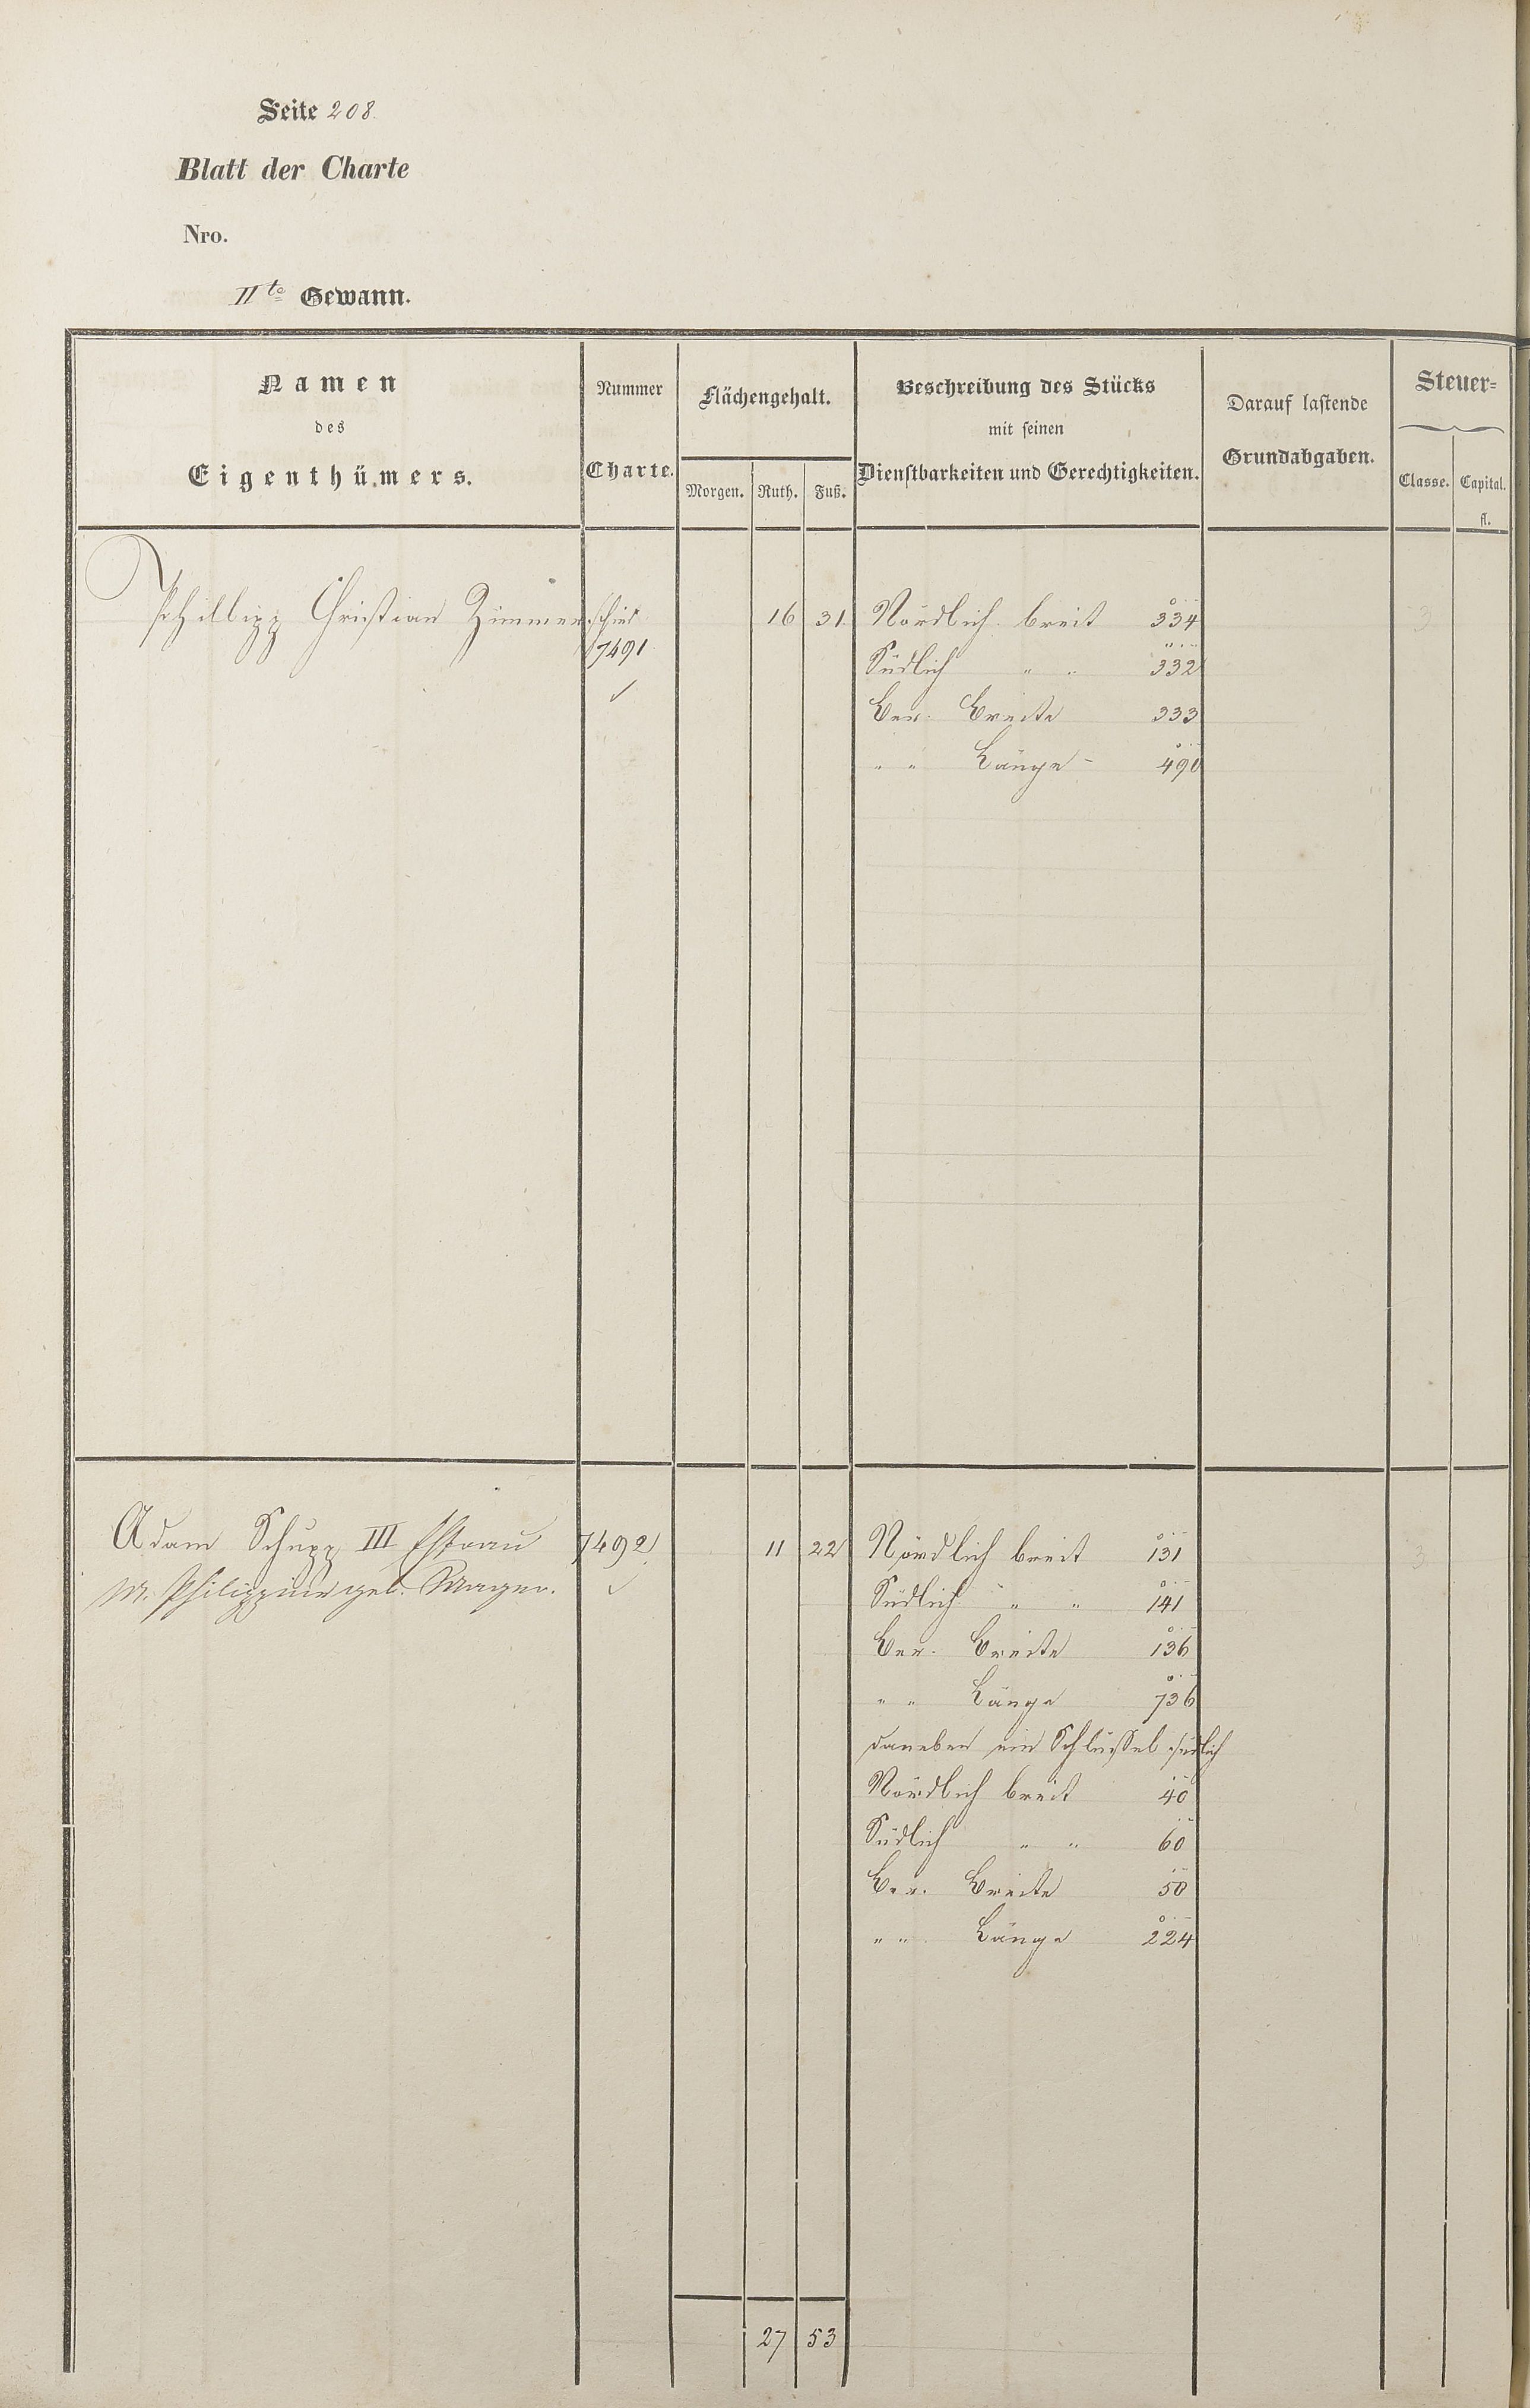 Seite 208.
Blatt der Charte
Nro.
IIte Gewann.
Namen des Eigenthümers.
Nummer Charte.
Flächengehalt.
Morgen. Ruth. Fuß.
Beschreibung des Stücks mit seinen Dienstbarkeiten und Gerechtigkeiten.
Darauf lastende Grundabgaben.
Steuer=
Classe. Capital.
fl.
Phillipp Christian Zimmerschied 16 31. Nördlich breit 334 3
7491 Südlich " " 332
Ber. Breite 333
" " Länge - 490
Adam Schupp III Ehfrau 7492 11 22 Nördlich breit 131 3
M. Philippine geb. Mager. Südlich " " 141
Ber. Breite 136
" " Länge 736
daneben ein Schlüssel südlich
Nördlich breit 40
Südlich " " 60
Ber. Breite 50
" " Länge 224
27 53